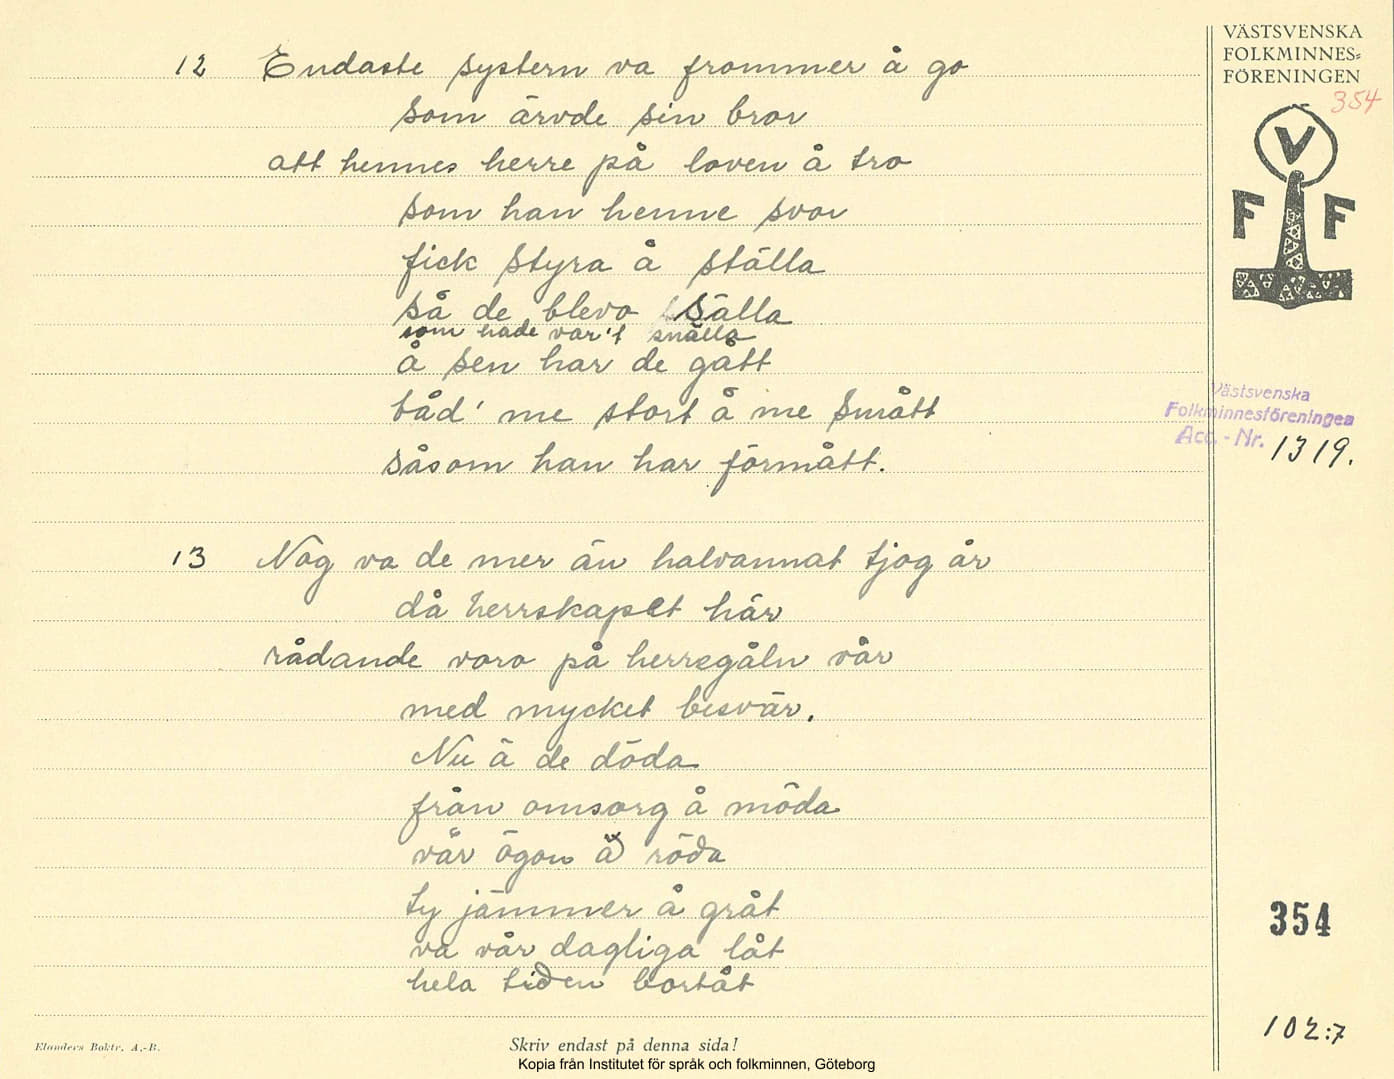 VÄSTSVENSKA
FOLKMINNES=
FÖRENINGEN
354
V
F F
12 Endaste systern va frommer å go
som ärvde sin bror
att hennes herre på loven å tro
som han henne svor
fick styra å ställa
så de blevo sälla
som hade var't snälla
å sen har de gått
båd' me stort å me smått
såsom han har förmått.
Västsvenska
Folkminnesföreningen
Acc. - Nr. 1319.
13 Nog va de mer än halvannat tjog år
då herrskapet här
rådande voro på herregåln vår
med mycket besvär.
Nu ä de döda
från omsorg å möda
vår ögon ä röda
ty jämmer å gråt
va vår dagliga låt
hela tiden bortåt
354
102:7
Elanders Boktr. A.-B.
Skriv endast på denna sida!
Kopia från Institutet för språk och folkminnen, Göteborg